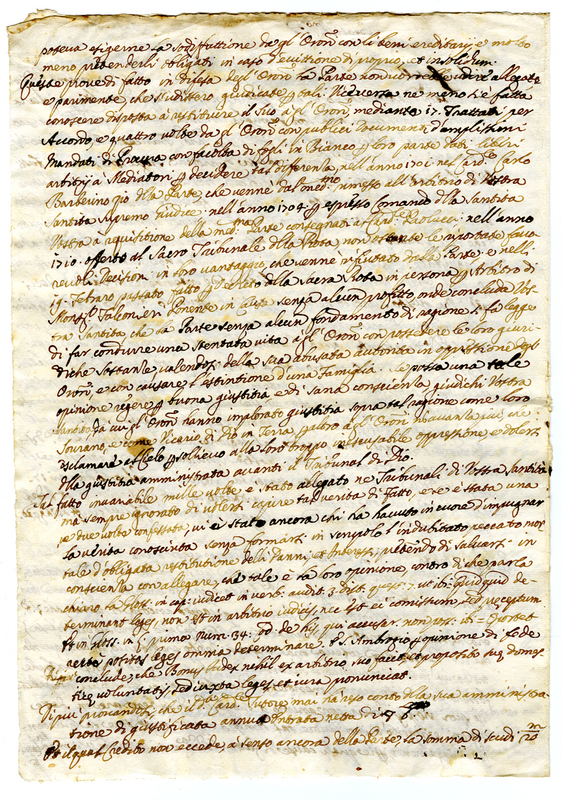 poteva esigerne la sodisfattione da gl' Oron: con li beni ereditarij, e molto
meno prettenderli obligati in caso d'evittione di proprio, et insolidum.
Queste prove di fatto in difesa degl' Oron: la Parte non vuole udire allegate
e parimente, che s'udissero giudicate tali. Viceversa ne meno si è fatta
conoscere disposta a restituire il Suo à gl' Oron: mediante 17. Trattati per
Accordo, e quattro volte da gl' Oron: con publici Documenti d'amplissimi
Mandati di Procura con facoltà di fogli in Bianco p loro parte dati liberi
arbitrij à Mediatori p decidere tal differenza, nell'anno 1701 nel Sig. Carlo
Barberino già della Parte, che venne dal med. rimesso all'arbitrio di Vostra
Santità Supremo Giudice. nell'anno 1704. p espresso comando della Santità
Vostra a requisitione della med. Parte consegnati a nell'anno
1710. offerto al Sacro Tribunale della Rota non ostante le riportate favo
revoli Decisioni in loro vantaggio, che venne rifiutato dalla Parte. e nelli
19. Febraro passato fatto p Decreto della Sacra Rota in persona p Arbitro di
Mons. Falconieri Ponente in Causa senza alcun profitto, onde conclude Vos
tra Santità che la Parte senza alcun fondamento di ragione si fa legge
di far condurre una stentata vita à gl' Oron: con possedere le loro giuri
diche Sostanze valendosi della sua abusata autorità in oppressione degl'
Oron:, e con causare l'estintione d'una famiglia. Se possa una tale
opinione reggere p buona giustitia, e di sana conscienza, giudichi Vostra
Santità, da cui gl' Oron: hanno implorato giustitia sopra tal ragione come loro
Sovrano, e come Vicario di Dio in Terra
esclamare al Cielo p solievo alla loro troppo inescusabile oppressione, e dolersi
della giustitia amministrata avanti il Tribunal di Dio.
Tal fatto invariabile mille volte è stato allegato ne Tribunali di Vostra Santità
ma sempre ignorato di volersi capire tal verità di Fatto, e se è stata una
p due volte confessata, vi è stato ancora chi ha havuto in cuore d'impugnar
la verità conosciuta senza formarsi in scrupolo l'indubitato peccato mor
tale d'obligata restitutione delli Danni, et Interessi, pretendendo di salvarsi in
conscienza con allegare, che tale è la loro opinione, contro di che parla
chiaro la Gloss: in cap: iudicet in verb: audit 3. dist. quest. 7. ut ibi: Quidquid de-
terminant leges, non est in arbitrio iudicis, nec est ei comissum, sed preceptum
Et in Gloss. in l: prima num: 34: ad de his, qui accusar. non poss. ibi = Oportet
certe potius leges omnia determinare. e S. Ambrosio p opinione di fede
conclude che Bonus Iudex nihil ex arbitrio suo facit, et proposito suę domes
ticę voluntatis, sed iuxta leges, et iura pronunciat.
Di più provandosi, che il Card. Tutore mai hà reso conto della sua amministra-
tione di giustificata annua Intrata netta di
Se il qual Credito non eccede, à senso ancora della Parte, la somma di scudi m/20